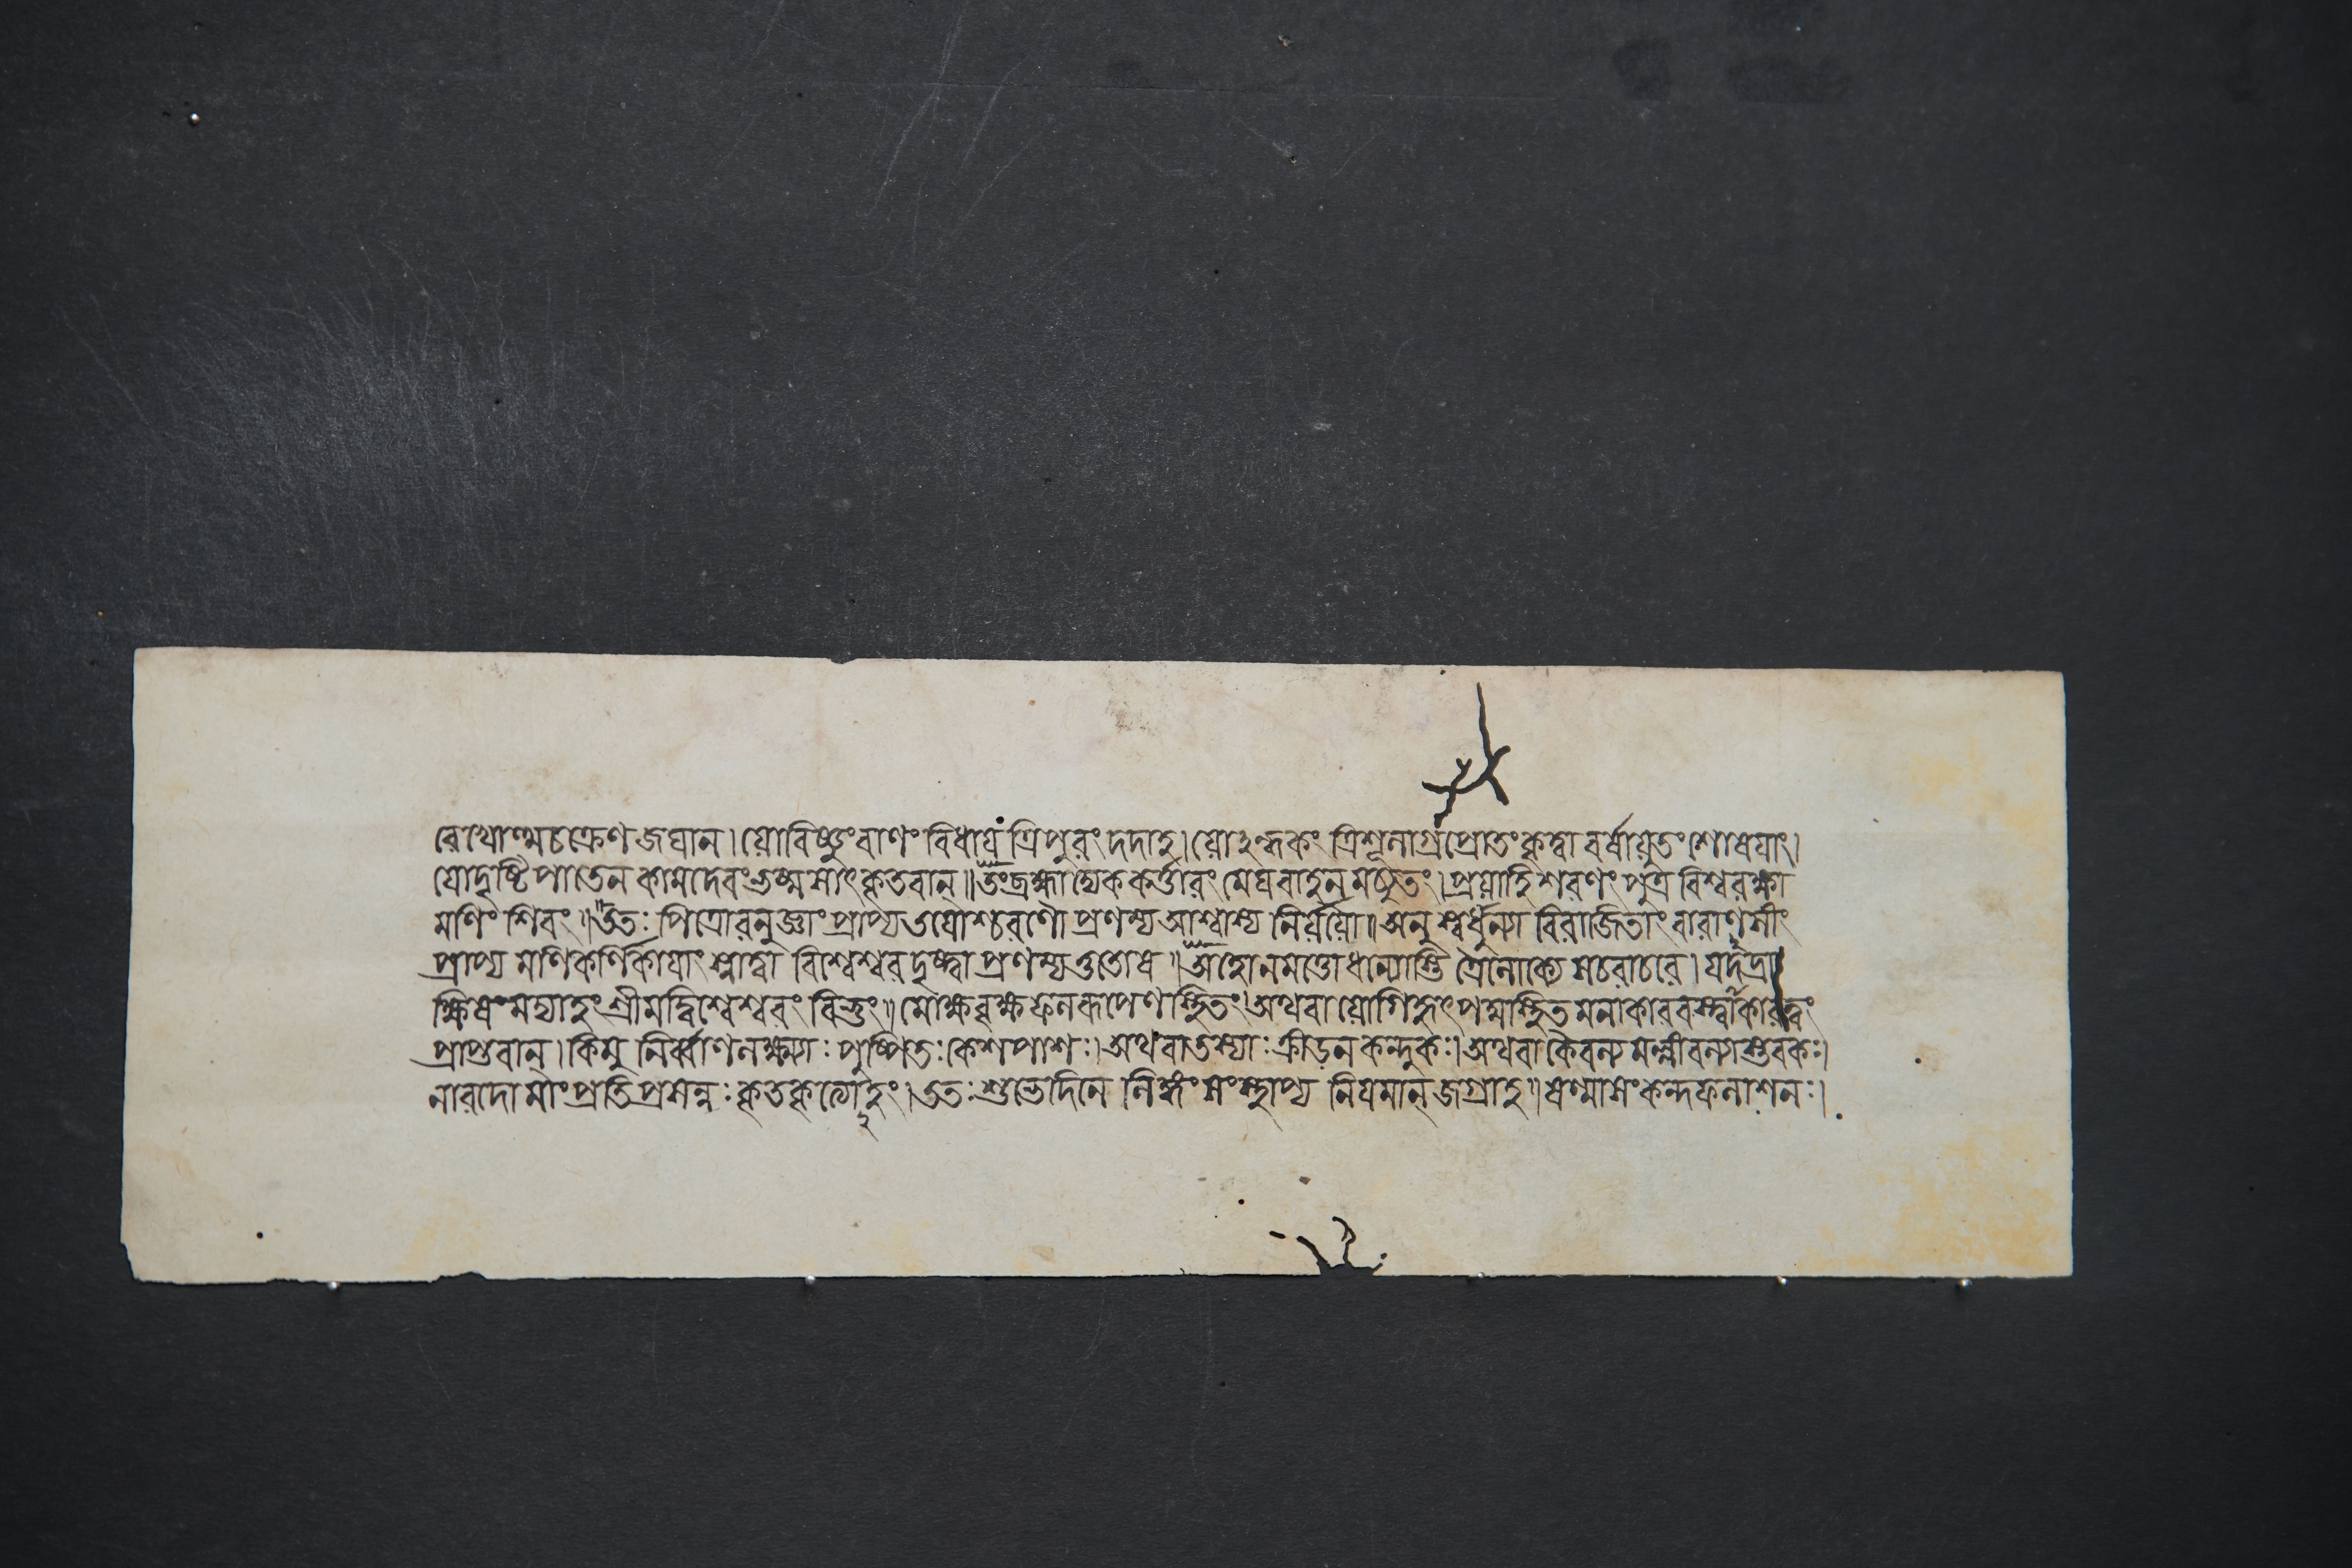 রেখোত্থচক্রেণ জঘান। যো বিষ্ণুং বাণং বিধায় ত্রিপুরং দদাহ। যোঽন্ধকং ত্রিশূলাগ্রপ্রোতং কৃত্বা বর্ষাযুতং শোষয়াং।
যোদৃষ্টিপাতেন কামদেবং ভষ্মসাৎ কৃতবান্॥ তং ব্রহ্মাদ্যেককর্ত্তারং মেঘবাহনমচ্যুতং। প্রয়াহি শরণং পুত্র বিশ্বরক্ষা
মণিং শিবং॥ ততঃ পিত্রোরনুজ্ঞাং প্রাপ্য তয়োশ্চরণৌ প্রণম্য আশ্বাস্য নির্য্যযৌ॥ অনু স্বর্ধুন্যা বিরাজিতাং বারাণসীং
প্রাপ্য মণিকর্ণিকায়াং স্নাত্বা বিশ্বেশ্বর দৃষ্ট্বা প্রণম্য তুতোষ॥ অহো ন মত্তো ধান্যোস্তি ত্রৈলোক্যে সচরাচরে। যদদ্রা
ক্ষিষং মদ্যাহং শ্রীমদ্বিশ্বেশ্বরং বিভুং॥ মোক্ষবৃক্ষফলরূপেণ স্থিতং। অথবা যোগিহৃৎপদ্মস্থিতমনাকারবস্ত্বাকারত্বং
প্রাপ্তবান্। কিমু নির্ব্বাণলক্ষ্ম্যাঃ পুষ্পিতঃ কেশপাশঃ। অথবা তস্যাঃ ক্রীড়নকন্দুকঃ। অথবা কৈবল্যমল্লীবল্যাস্তবকঃ।
নারদো মাং প্রতি প্রসন্নঃ কৃতকৃত্যোহং। ততঃ শুভে দিনে লিঙ্গং সংস্থাপ্য নিয়মান্ জগ্রাহ॥ ষণ্মাসং কন্দফলাশনঃ।
২